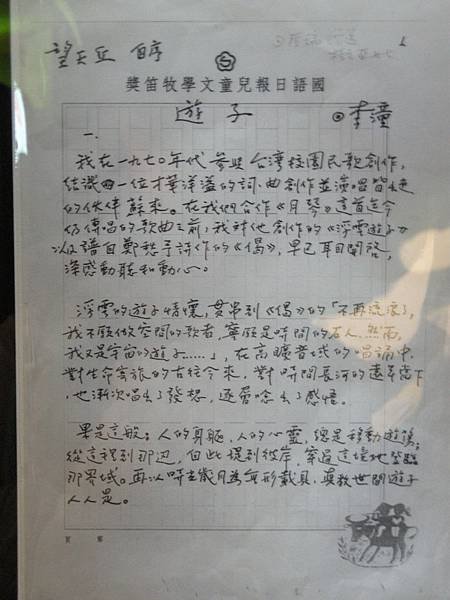 望天丘 自序
國語日報兒童文學牧笛獎
遊子 ◎李潼
一.
我在一九七〇年代參與台灣校園民歌創作,
結識一位才華洋溢的詞、曲創作並演唱皆
的伙伴蘇來。在我們合作《月琴》這首迄今
仍傳唱的歌曲之前,我對他創作的《浮雲遊子》
以及譜自鄭愁予詩作的《偈》,早已耳目開啓,
深感動聽和動心。
浮雲的遊子情懷,貫串到《偈》的「不再流浪了,
我不願做空間的歌者,寧願是時間的石人.然而,
我又是宇宙的遊子……」,在高曠音域的唱誦中,
對生命寄旅的古往今來,對時間長河的
也漸次唱出了發想,逐層唸出了感悟。
果是這般:人的身軀,人的心靈,總是移動遊
從這裡到那边,自此堤到彼岸,穿居這境地登臨
那界域。再以時光歲月為無形載具,真教世間遊子
人人是。
頁 第